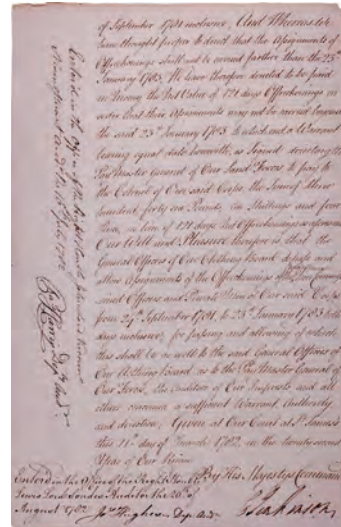 of September 1784 inclusive, And Whereas We
have thought proper to direct that the Assignments of
Offreckonings shall not be carried further than the 25th
January 1783. We have therefore directed to be paid
in Money the Net Value of 121 days Offreckonings in
order that their Assignments may not be carried beyond
the said 25th January 1783 to which end a Warrant
bearing equal date herewith, is Signed directing the
Paymaster General of Our Land Forces to pay to
the Colonel of Our said Corps the Sum of Three
hundred forty six Pounds, Shillings and four
Pence, in lieu of 121 days Net Offreckonings as aforesaid
Our Will and Pleasure therefore is that the
General Officers of Our Clothing Board do pass and
allow Assignments of the Offreckonings of the
Officers and Private Men of Our said Corps
from 24th September 1781 to 25th January 1783 both
days inclusive, for passing and allowing of which
this shall be as well to the said General Officers of
Our Clothing Board as to the Paymaster General of
Our Forces, the Auditors of Our Imprests and all
others concerned a sufficient Warrant, Authority
and direction. Given at Our Court at St. James's
this 11th day of March 1782, in the twenty second
Year of Our Reign
By His Majesty's Command
Entered in the Office of the Right Honble
Lewis Lord Sondes Auditor the 28th of
August 1782 Jno Hughson Dep. Audr
Entered in the Office of the Right Honble
Dep. Audr